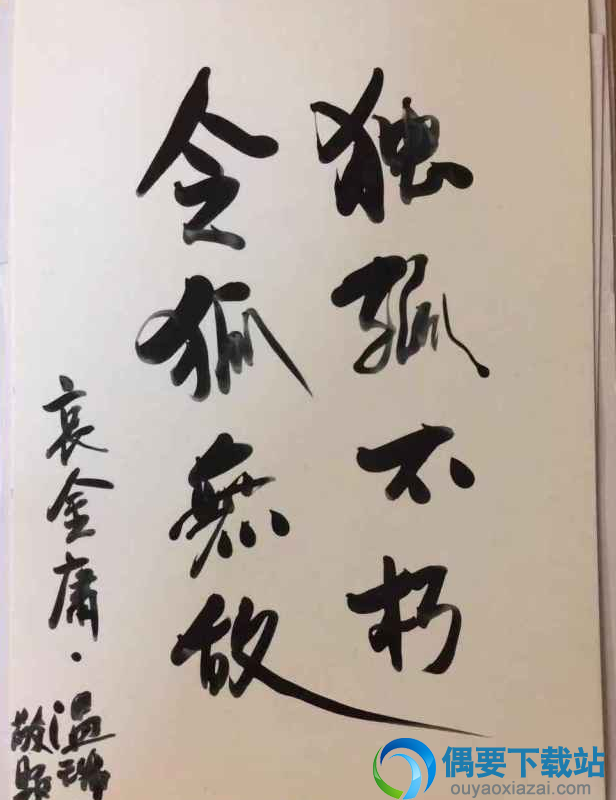 独孤不朽
令狐無敌
哀金庸·
温瑞
敬
偶要下载站
ouyaoxiazai.com